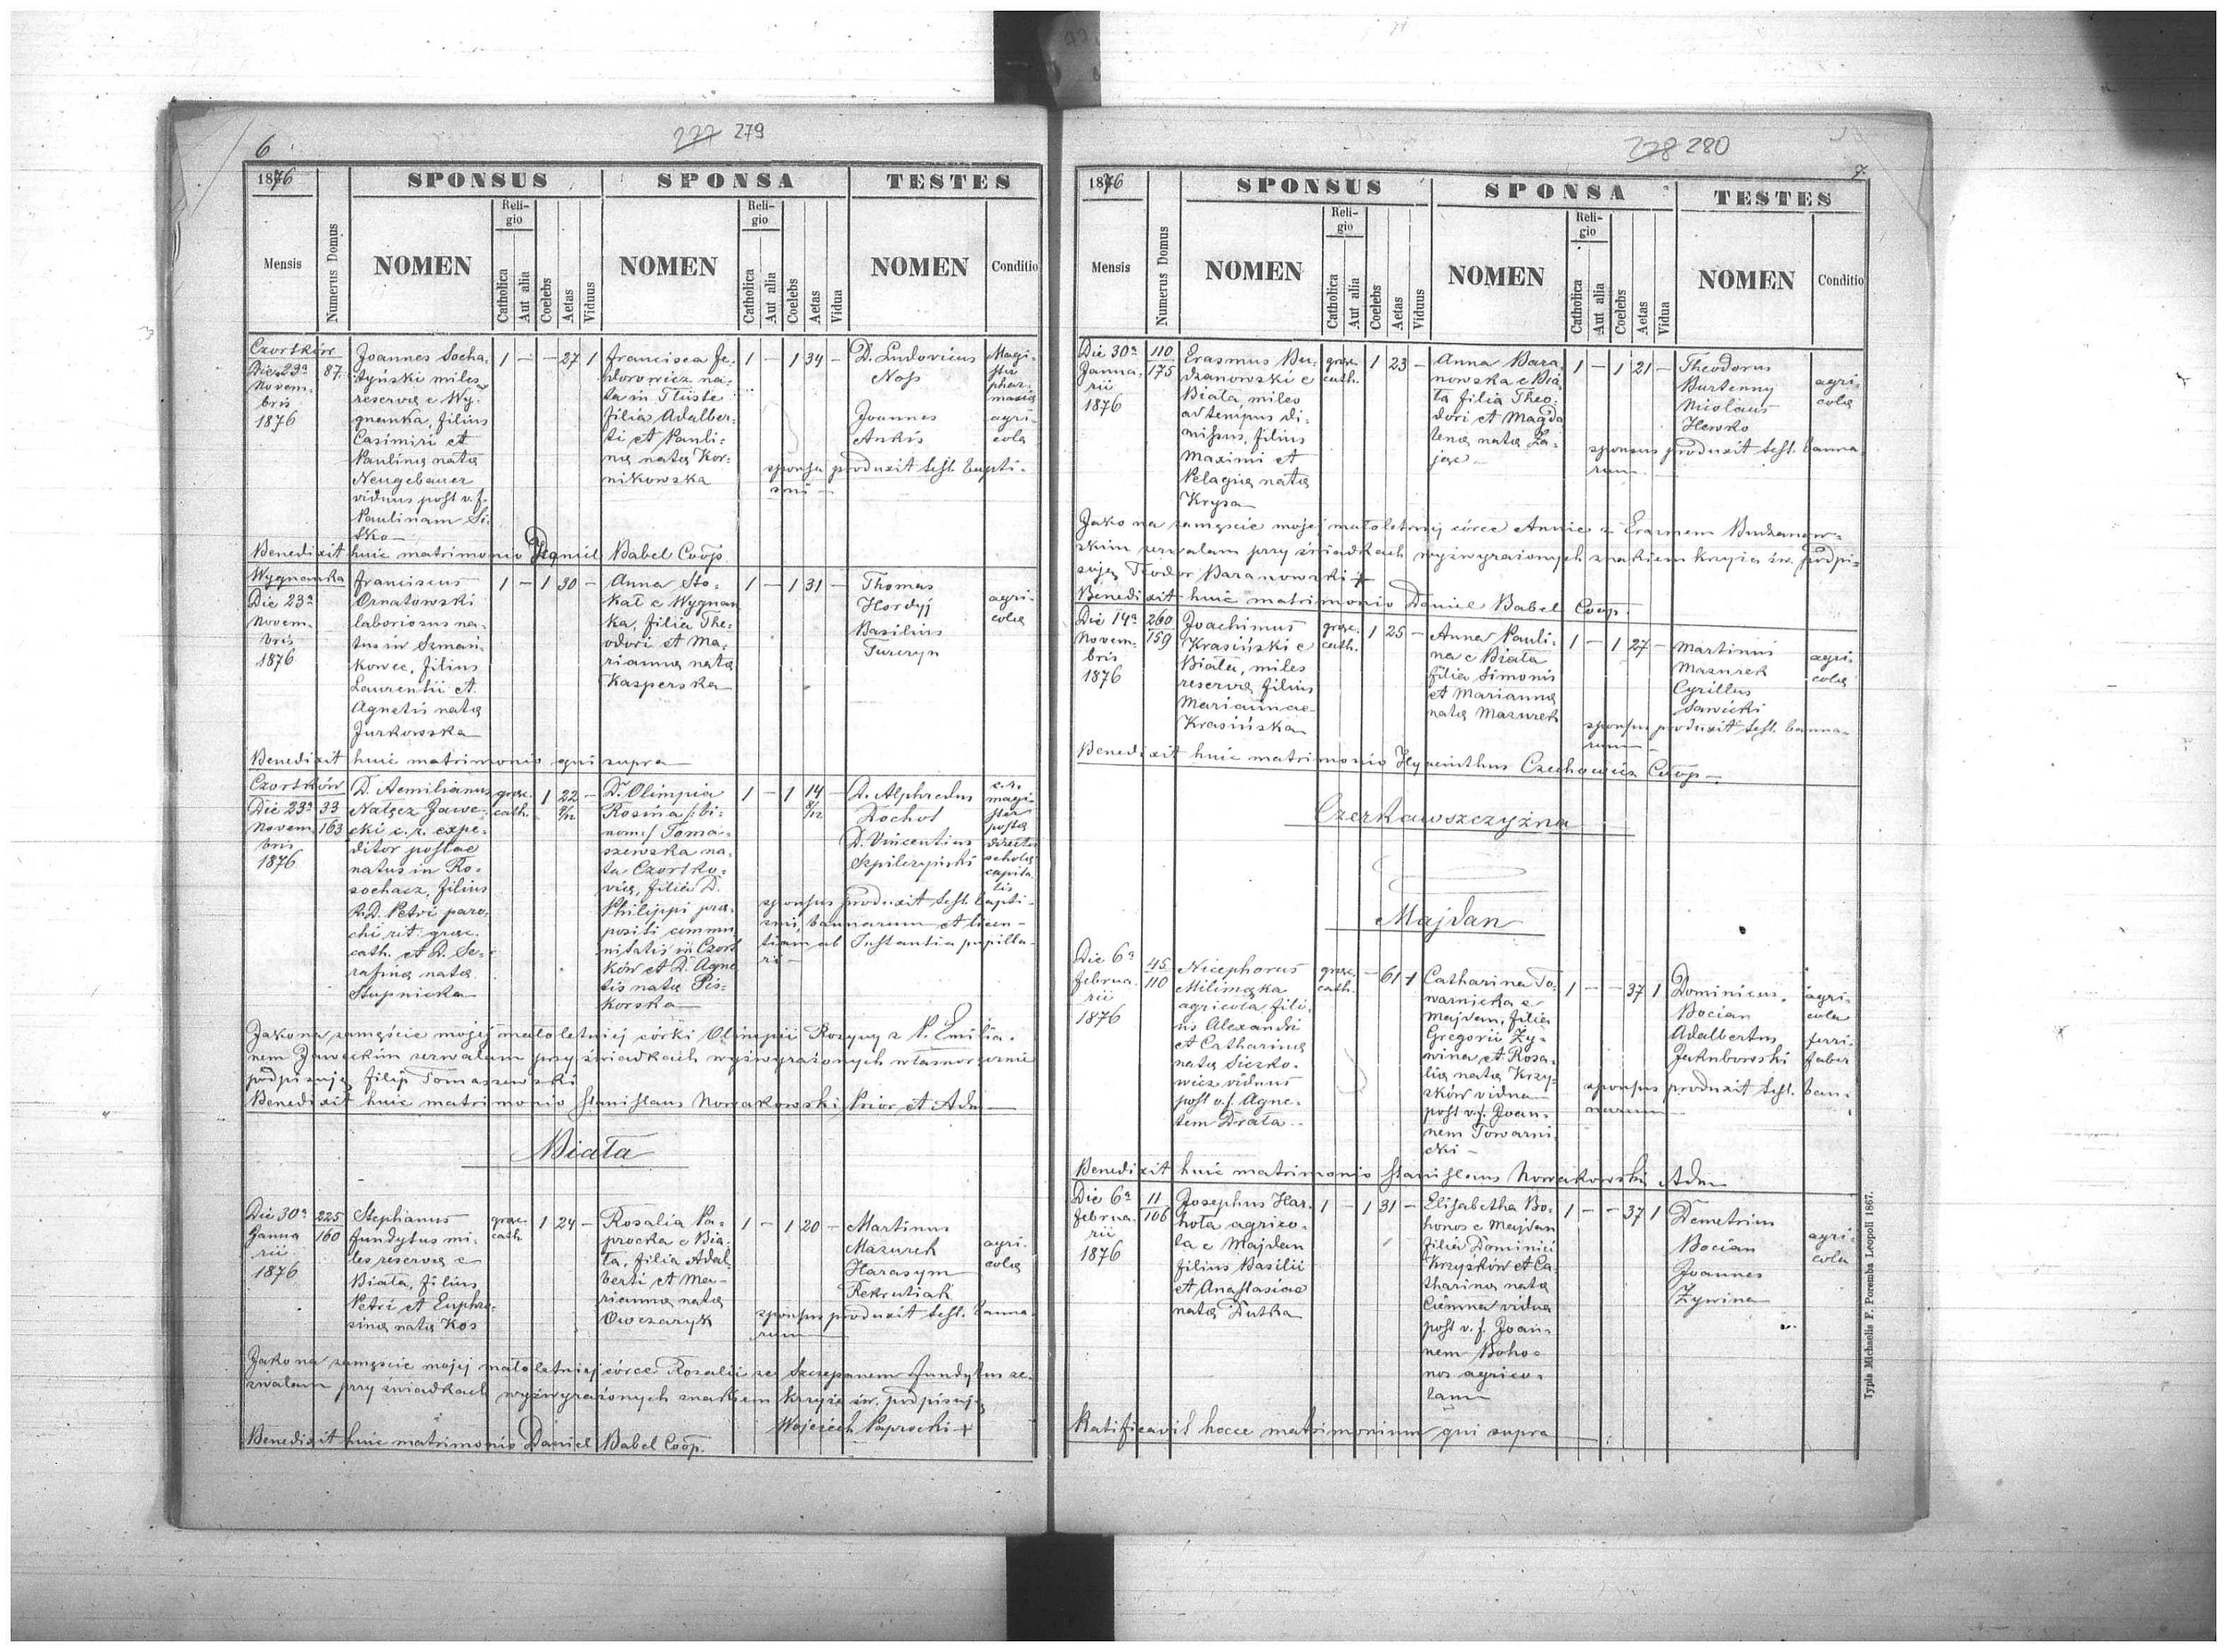 6
277 279
1876
SPONSUS
SPONSA
TESTES
Mensis
Numerus Domus
NOMEN
Religio
Catholica
Aut alia
Coelebs
Aetas
Viduus
NOMEN
Religio
Catholica
Aut alia
Coelebs
Aetas
Vidua
NOMEN
Conditio
Czortków
Die 23a
Novem-
bris
1876
87.
Joannes Socha-
tyński miles
reservæ e Wy-
gnanka, filius
Casimiri et
Paulinæ natæ
Neugebauer
viduus post v. f.
Paulinam Si-
sko
1 – – 27 1
Francisca Fe-
dorowicz na-
ta in Tłuste
filia Adalber-
ti et Pauli-
næ natæ Kor-
nikowska
1 – 1 34 –
D. Ludovicus
Noss
Joannes
Ankis
Magi-
ster
phar-
maciæ
agri-
cola
sponsa produxit test. bapti-
smi –
Benedixit huic matrimonio Daniel Babel Coop.
Wygnanka
Die 23a
Novem-
bris
1876
Franciscus
Ornatowski
laboriosus na-
tus in Szmań-
kowce, filius
Laurentii et
Agnetis natæ
Jurkowska
1 – 1 30 –
Anna Sto-
kał e Wygnan
ka, filia The-
odori et Ma-
riannæ natæ
Kasperska
1 – 1 31 –
Thomas
Hordyj
Basilius
Turczyn
agri-
colæ
Benedixit huic matrimonio qui supra
Czortków
Die 23a
Novem-
bris
1876
33
163
D. Aemilianus
Nałęcz Jawe-
cki c. r. expe-
ditor postae
natus in Ro-
sochacz, filius
R. D. Petri paro-
chi rit. græc.
cath. et D. Se-
rafinæ natæ
Stupnicka
græc.
cath.
– 1 22 8/12 –
D. Olimpia
Rosina /: bi-
nom:/ Toma-
szewska na-
ta Czortko-
viæ, filia D.
Philippi præ-
positi commu
nitatis in Czort
ków et D. Agne
tis natæ Pis-
korska
1 – 1 14 8/12 –
D. Alphredus
Dochot
D. Vincentius
Szpilczyński
c. r.
magi-
ster
postæ
director
scholæ
capita-
lis
sponsus produxit test. bapti-
smi, bannorum et licen-
tiam ab Instantia pupilla-
ri –
Jako na zamęście mojej małoletniej córki Olimpii Rozyny z P. Emilia-
nem Jaweckim zezwalam przy świadkach wyżwyrażonych własnoręcznie
podpisuję Filip Tomaszewski
Benedixit huic matrimonio Stanislaus Nowakowski Prior et Adm
Biała
Die 30a
Janua
rii
1876
225
160
Stephanus
Fundytus mi-
les reservæ e
Biała, filius
Petri et Euphro-
sinæ natæ Kos
græc.
cath.
1 24 –
Rosalia Pa-
procka e Bia-
ła, filia Adal
berti et Ma-
riannæ natæ
Owczaryk
1 – 1 20 –
Martinus
Mazurek
Harasym
Rekrutiak
agri-
colæ
sponsus produxit test. banno-
rum
Jako na zamęście mojej małoletniej córce Rosalii ze Szczepanem Fundytus ze-
zwalam przy świadkach wyżwyrażonych znakiem krzyża św. podpisuję
Wojciech Paprocki +
Benedixit huic matrimonio Daniel Babel Coop.
278 280
7.
1876
SPONSUS
SPONSA
TESTES
Mensis
Numerus Domus
NOMEN
Religio
Catholica
Aut alia
Coelebs
Aetas
Viduus
NOMEN
Religio
Catholica
Aut alia
Coelebs
Aetas
Vidua
NOMEN
Conditio
Die 30a
Janua-
rii
1876
110
175
Erasmus Bu-
dzanowski e
Biała, miles
ad tempus di-
missus, filius
Maximi et
Pelagiæ natæ
Krysa
græc.
cath.
1 23 –
Anna Bara-
nowska e Bia
ła filia Theo-
dori et Magda
lenæ natæ Za-
jąc –
1 – 1 21 –
Theodorus
Burtenny
Nicolaus
Hewko
agri-
colæ
sponsus produxit test. banno
rum
Jako na zamęście mojej małoletniej córce Annie z Erazmem Budzanow-
skim zezwalam przy świadkach wyżwyrażonych znakiem krzyża św. podpi-
suję Teodor Baranowski +
Benedixit huic matrimonio Daniel Babel Coop.
Die 14a
Novem-
bris
1876
260
159
Joachimus
Krasiński e
Biała, miles
reservæ filius
Mariannae
Krasińska
græc.
cath.
1 25 –
Anna Pauli-
na e Biała
filia Simonis
et Mariannæ
natæ Mazurek
1 – 1 27 –
Martinus
Mazurek
Cyrillus
Sawicki
agri-
colæ
sponsus produxit test. banno-
rum
Benedixit huic matrimonio Hyacinthus Czechowicz Coop –
Czerkawszczyzna
Majdan
Die 6a
Februa-
rii
1876
45
110
Nicephorus
Milimąka
agricola, fili-
us Alexandri
et Catharinæ
natæ Siczko-
wicz viduus
post v. f. Agne-
tem Drała
græc.
cath.
– 61 1
Catharina To-
warnicka e
Majdan, filia
Gregorii Ży-
wina et Rosa-
liæ natæ Krzy-
sków vidua
post v. f. Joan-
nem Towarni
cki –
1 – – 37 1
Dominicus
Bocian
Adalbertus
Jakubowski
agri-
cola
ferri-
faber
sponsus produxit test. ban-
norum
Benedixit huic matrimonio Stanislaus Nowakowski Adm
Die 6a
Februa-
rii
1876
11
106
Josephus Har-
hota agrico-
la e Majdan
filius Basilii
et Anastasiae
natæ Dutka
1 – 1 31 –
Elisabetha Bo-
honos e Majdan
filia Dominici
Krzysków et Ca-
tharinæ natæ
Ciemna vidua
post v. f. Joan-
nem Boho-
nos agrico-
lam
1 – – 37 1
Demetrius
Bocian
Joannes
Żywina
agri-
cola
Ratificavit hocce matrimonium qui supra
Typis Michaelis F. Poremba Leopoli 1867.